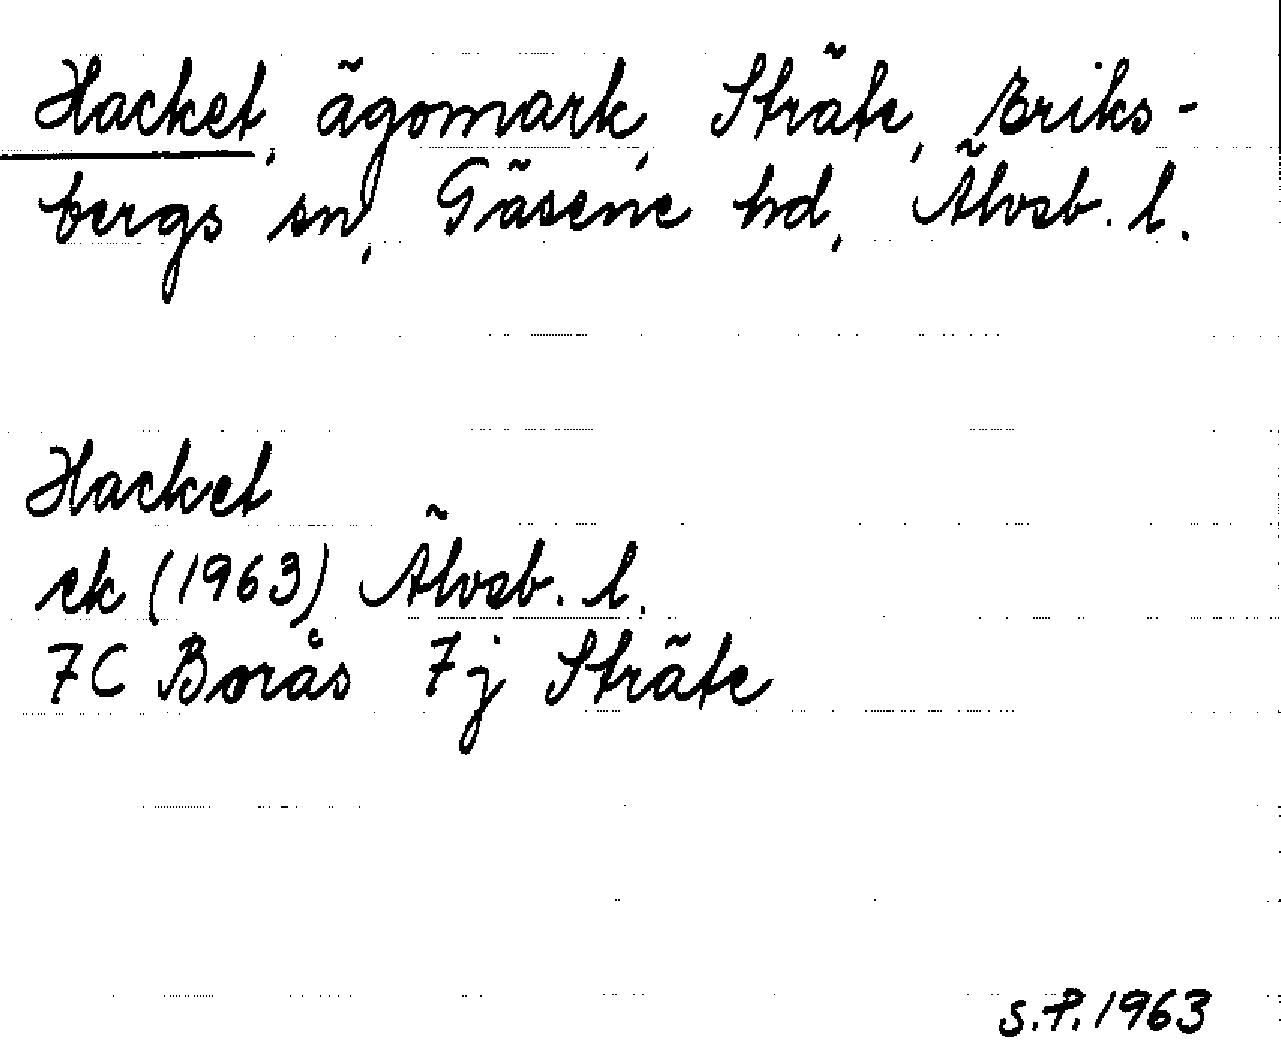 Hacket, ägomark, Sträte, Briks-
bergs sn, Gäsene hd, Älvsb. l.
Hacket
ek (1963) Älvsb. l.
7C Borås 7j Sträte
S.P. 1963